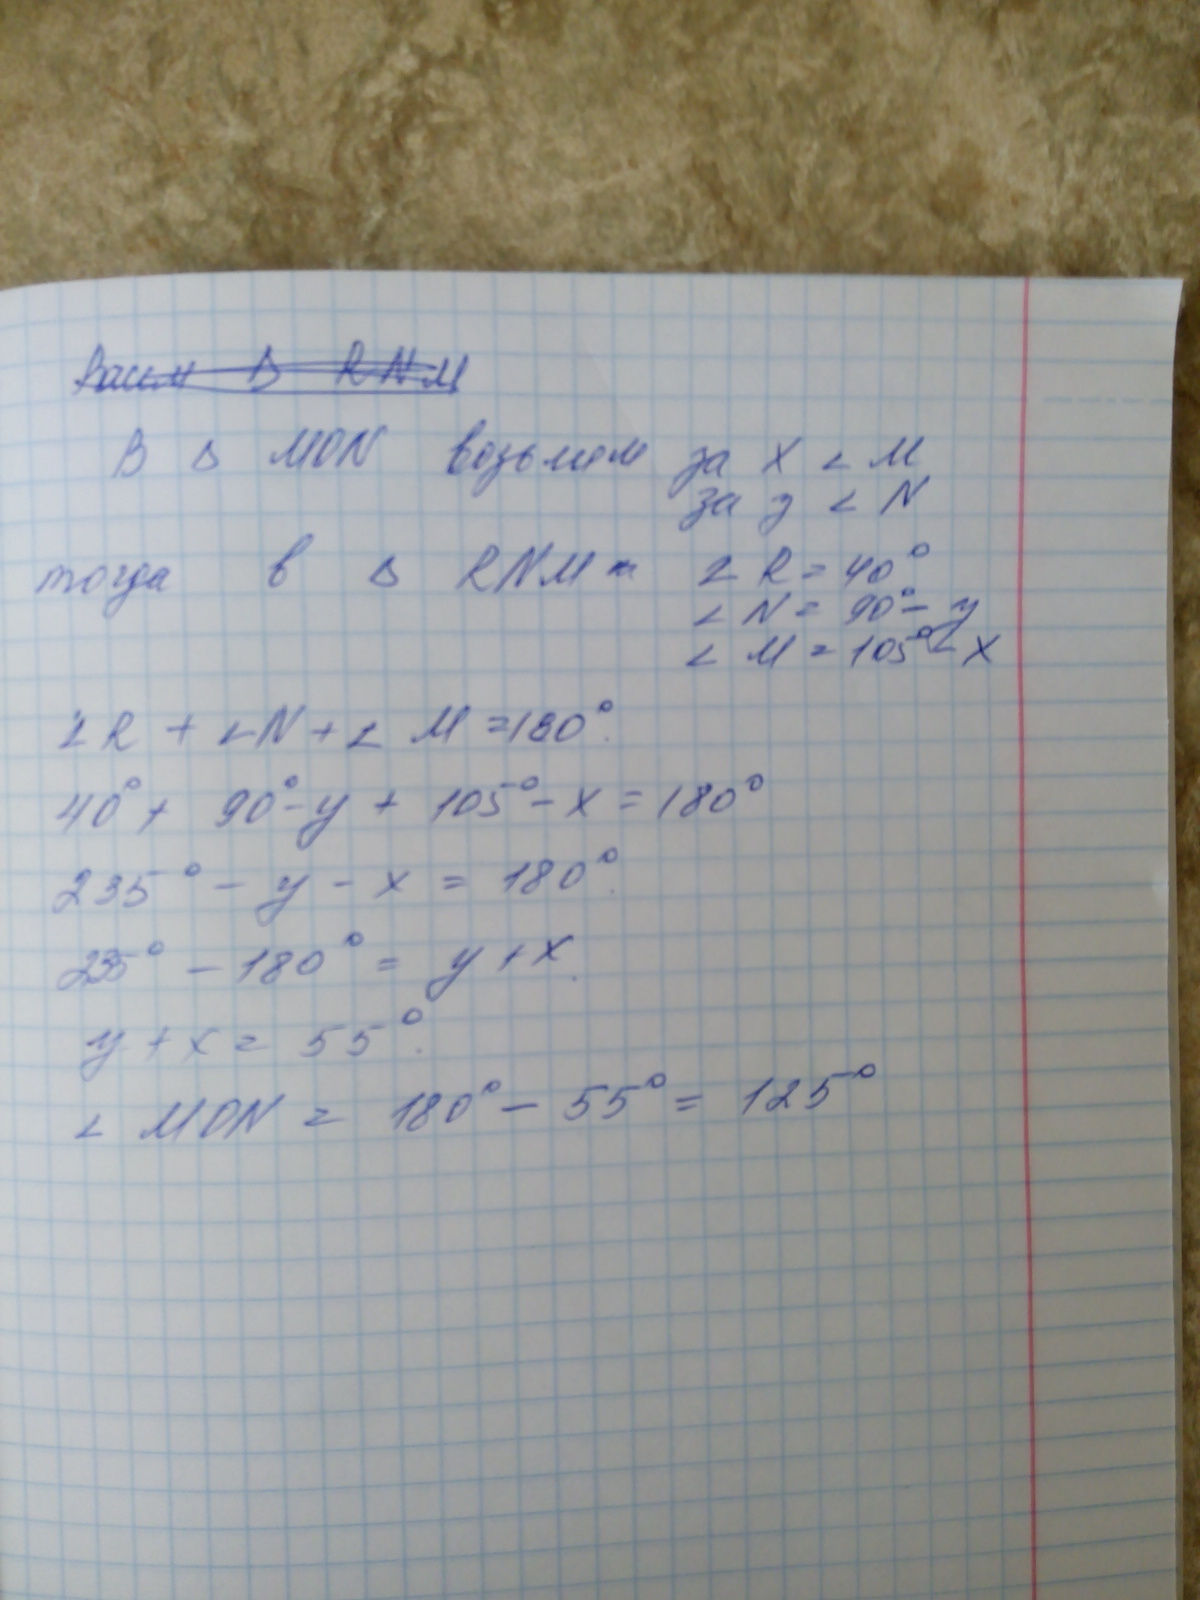 В △ MON возьмем за x ∠ M
за y ∠ N
тогда в △ RNM - ∠ R = 40°
∠ N = 90° - y
∠ M = 105° - x
∠ R + ∠ N + ∠ M = 180°.
40° + 90° - y + 105° - x = 180°
235° - y - x = 180°.
235° - 180° = y + x.
y + x = 55°.
∠ MON = 180° - 55° = 125°